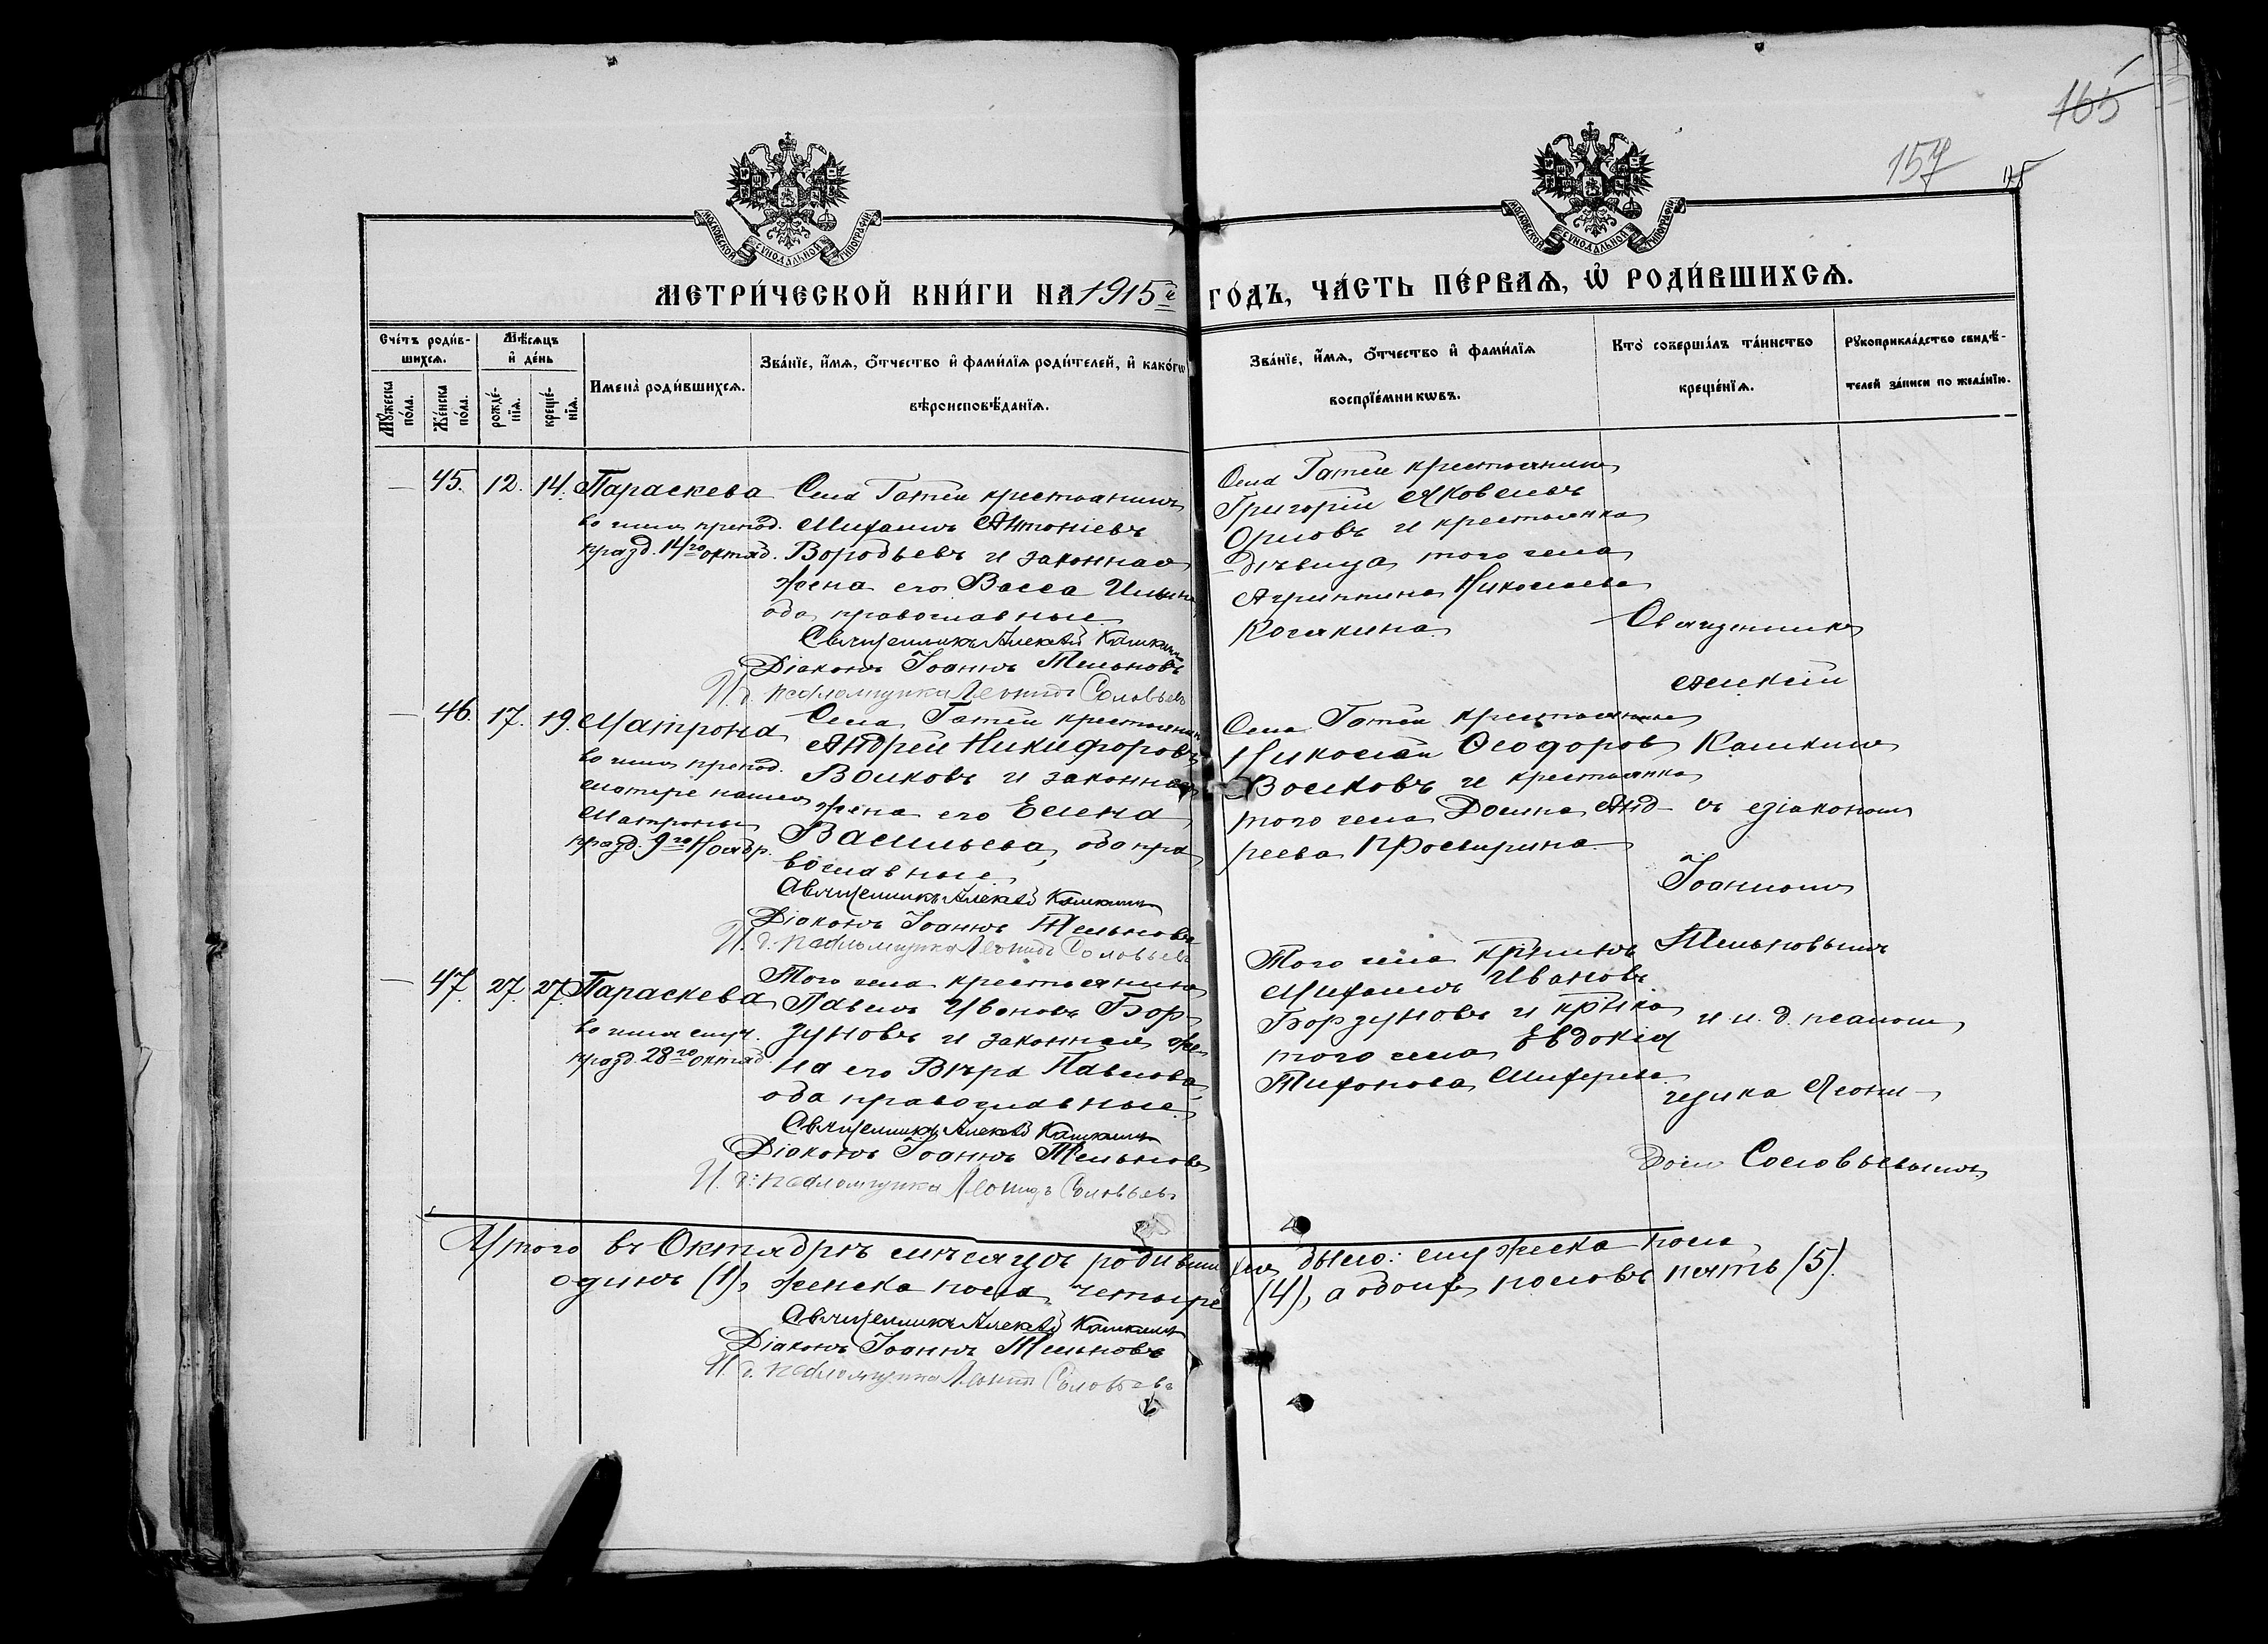 165
157
МОСКОВСКОЙ СѴНОДАЛЬНОЙ ТИПОГРАФІИ
МОСКОВСКОЙ СѴНОДАЛЬНОЙ ТИПОГРАФІИ
МЕТРИ́ЧЕСКОЙ КНИ́ГИ НА 1915й ГО́ДЪ, ЧА́СТЬ ПЕ́РВАѦ, Ѡ҆ РОДИ́ВШИХСѦ.
Сче́тъ роди́в-
шихсѧ.
Мꙋ́жеска по́ла.
Же́нска по́ла.
Мѣ́сѧцъ и҆ де́нь
рожде́-
нїѧ.
креще́-
нїѧ.
Имена̀ роди́вшихсѧ.
Зва́нїе, и҆́мѧ, ѻ҆́тчество и҆ фами́лїѧ роди́телей, и҆ како́гѡ
вѣроисповѣ́данїѧ.
Зва́нїе, и҆́мѧ, ѻ҆́тчество и҆ фами́лїѧ
воспрїе́мникѡвъ.
Кто̀ соверша́лъ та́инство
креще́нїѧ.
Рꙋкоприкла́дство свидѣ́-
телей за́писи по жела́нїю.
— 45. 12. 14. Параскева
во имя препод.
празд. 14го октяб.
Села Татеи крестьянинъ
Михаилъ Антоніевъ
Воробьевъ и законная
жена его Васса Ильина
оба православные.
Священникъ Алексѣй Кашкинъ
Діаконъ Іоаннъ Тельновъ
И. д. псаломщика Леонидъ Соловьевъ
Села Татеи крестьянинъ
Григорій Яковлевъ
Орловъ и крестьянка
дѣвица того села
Агриппина Николаева
Косякина.
— 46. 17. 19. Матрона
во имя препод.
матере нашея
Матроны
празд. 9го Ноябр.
Села Татеи крестьянинъ
Андрей Никифоровъ
Волковъ и законная
жена его Елена
Васильева, оба пра
вославные
Священникъ Алексѣй Кашкинъ
Діаконъ Іоаннъ Тельновъ
И. д. псаломщика Леонидъ Соловьевъ
Села Татеи крестьянинъ
Николай Ѳеодоровъ
Волковъ и крестьянка
того села Домна Анд-
реева Просвирина
— 47. 27. 27. Параскева
во имя муч.
празд. 28го октяб.
Того села крестьянинъ
Павелъ Ивановъ Бор-
зуновъ и законная же-
на его Вѣра Павлова,
оба православные.
Священникъ Алексѣй Кашкинъ
Діаконъ Іоаннъ Тельновъ
И. д. псаломщика Леонидъ Соловьевъ
Того села кр-нинъ
Михаилъ Ивановъ
Борзуновъ и кр-нка
того села Евдокія
Тихонова
Священникъ
Кашкинъ
съ діакономъ
Іоанномъ
Тельновымъ
и и. д. псалом
щика Леони-
домъ Соловьевымъ
Итого въ Октябрѣ мѣсяцѣ родившихся было: мужеска пола
одинъ (1), женска пола четыре (4), а обоихъ половъ пять (5).
Священникъ Алексѣй Кашкинъ
Діаконъ Іоаннъ Тельновъ
И. д. псаломщика Леонидъ Соловьевъ